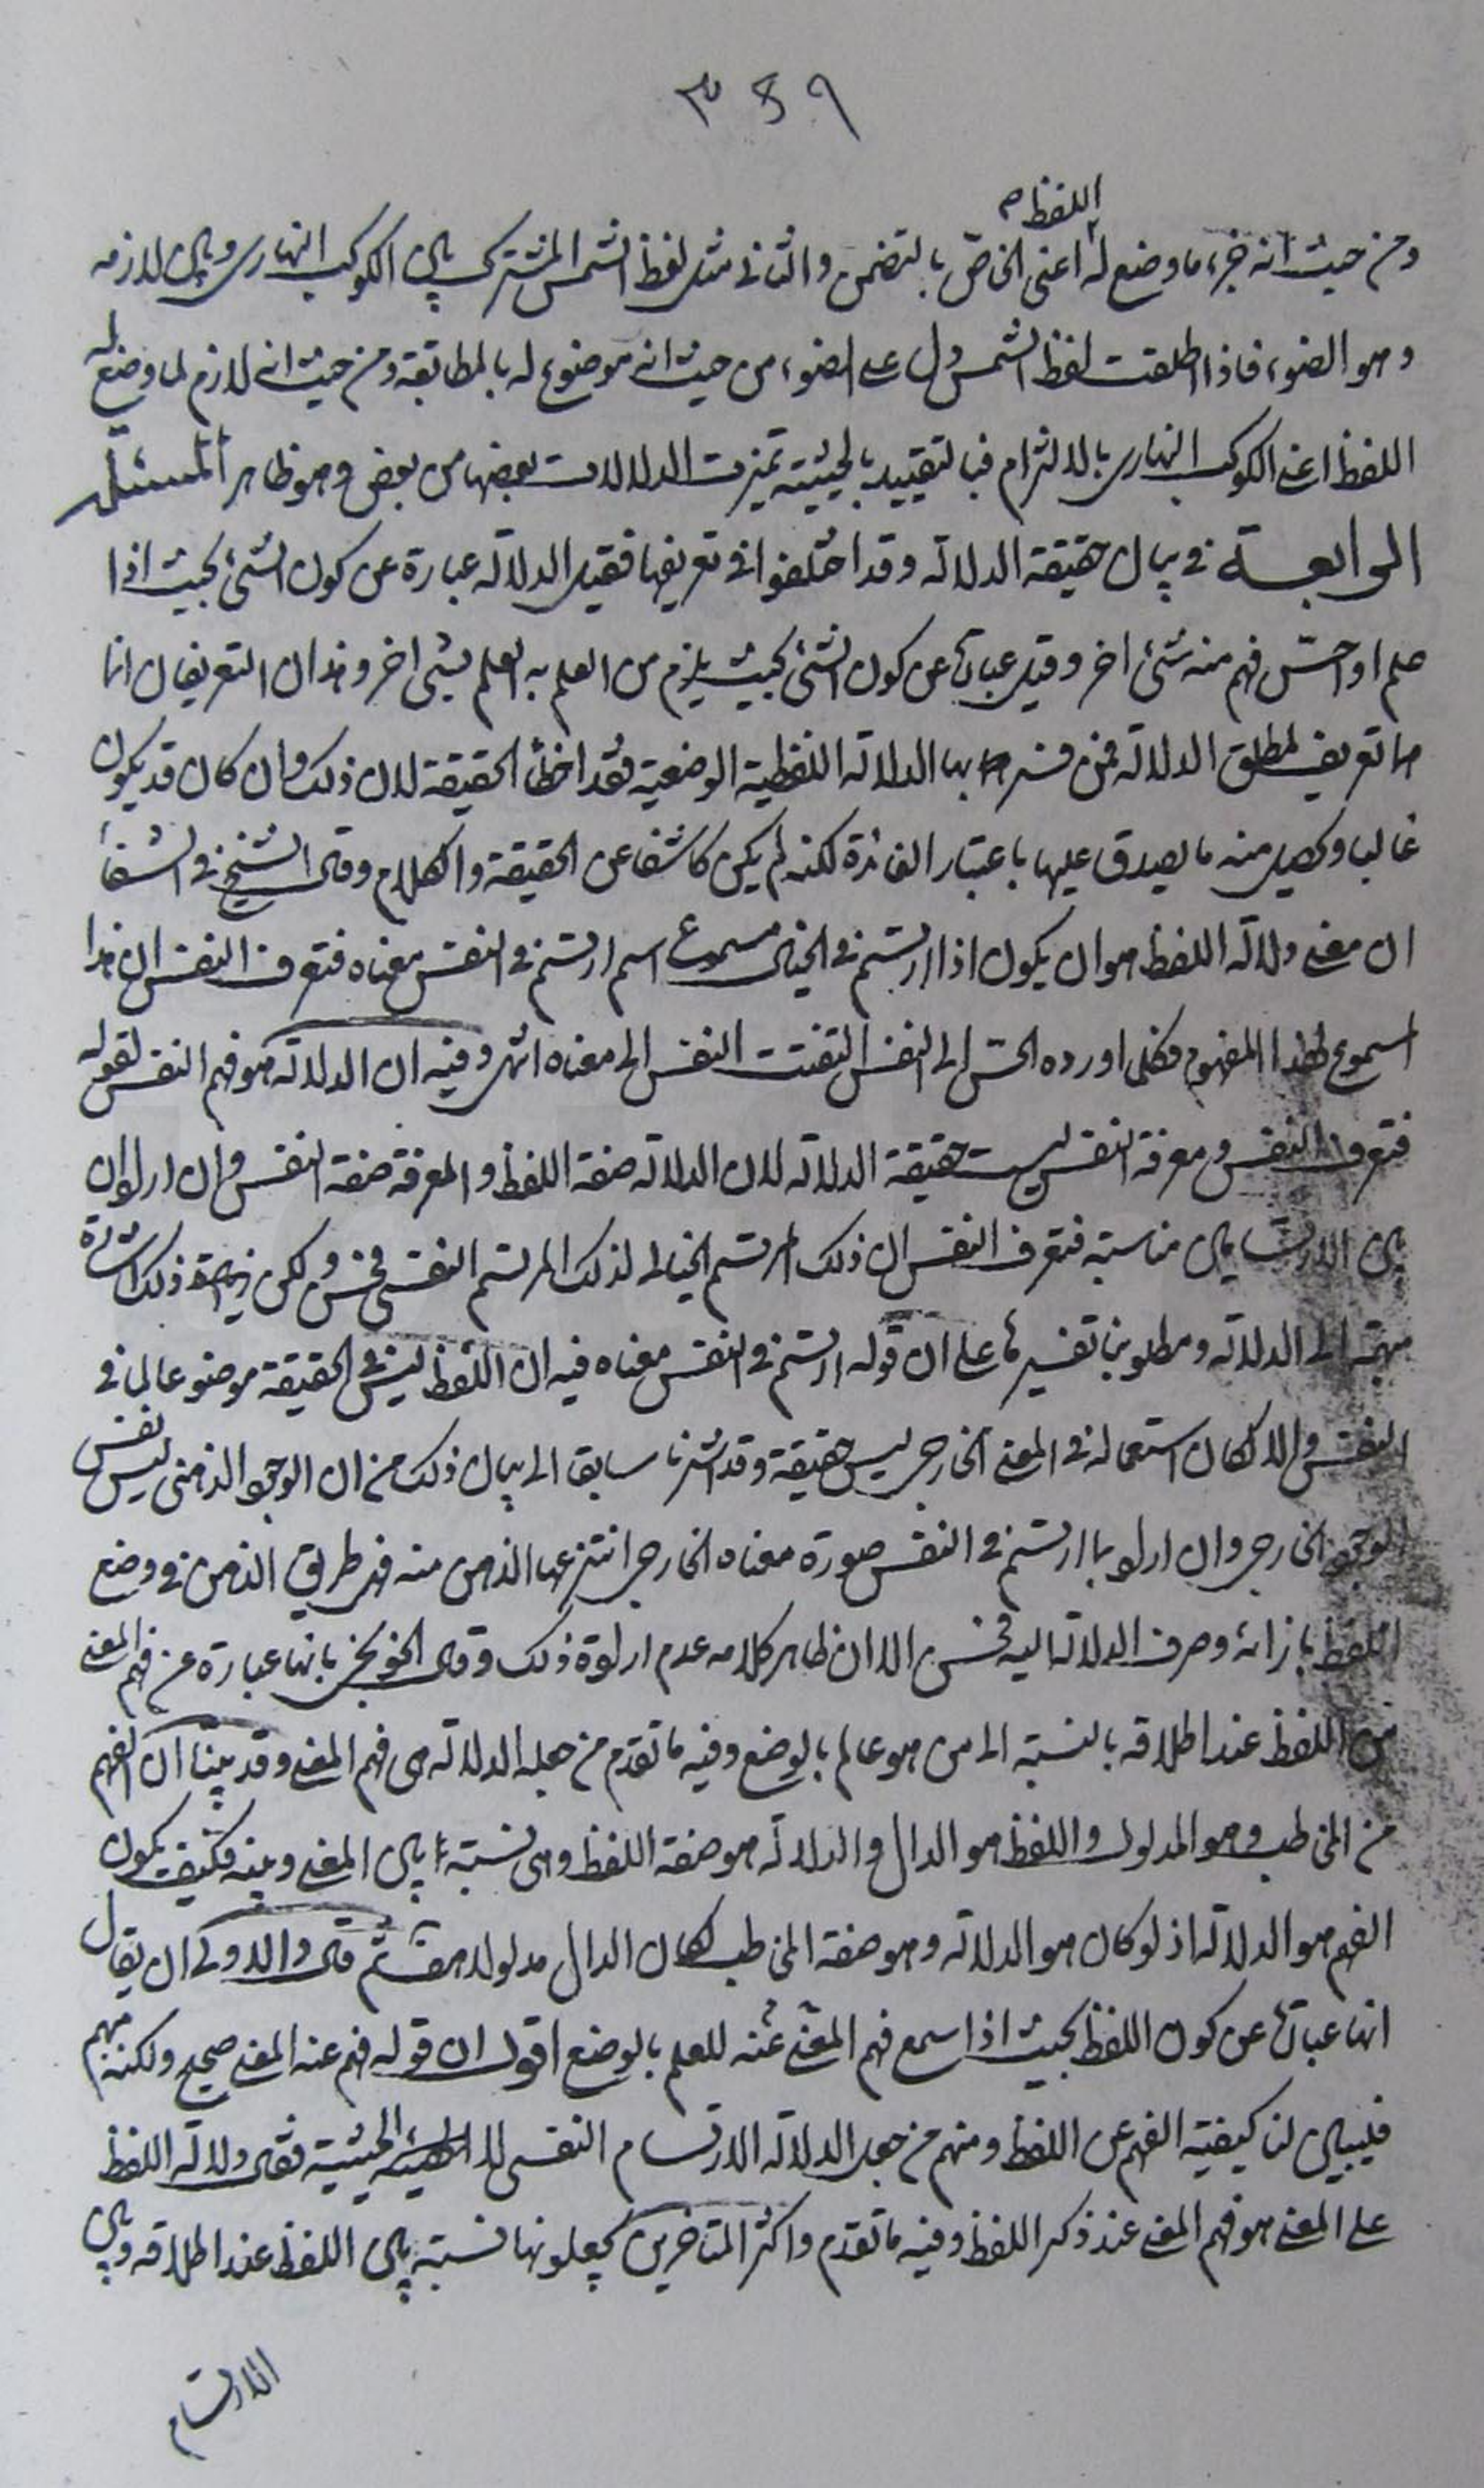 ٣٤٩
اللفظ
ومن حيث انه جزء ما وضع له اعنى الخاصّ بالتضمن والثانى مثل لفظ الشمس المشترك بين الكوكب النهارى وبين لازمه
وهو الضوء فاذا اطلقت لفظ الشمس دل على الضوء من حيث انه موضوع له بالمطابقة ومن حيث انه لازم لما وضع له
اللفظ اعنى الكوكب النهارى بالالتزام فبالتقييد بالحيثية تميزت الدلالات بعضها من بعض وهو ظاهر المسئلة
الرابعة فى بيان حقيقة الدلالة وقد اختلفوا فى تعريفها فقيل الدلالة عبارة عن كون الشئ بحيث اذا
علم او احسّ فهم منه شئ اخر وقيل عبارة عن كون الشئ بحيث يلزم من العلم به العلم بشئ اخر وهذان التعريفان انما
هما تعريف لمطلق الدلالة فمن فسر بها الدلالة اللفظية الوضعية فقد اخطأ الحقيقة لان ذلك وان كان قد يكون
غالبا ويحصل منه ما يصدق عليها باعتبار الفائدة لكنه لم يكن كاشفا عن الحقيقة والكلام وقال الشيخ فى الشفا
ان معنى دلالة اللفظ هو ان يكون اذا ارتسم فى الخيال مسموع اسم ارتسم فى النفس معناه فتعرف النفس ان هذا
المسموع لهذا المفهوم فكلما اورده الحسّ الى النفس التفتت النفس الى معناه انتهى وفيه ان الدلالة هو فهم النفس لقوله
فتعرف النفس ومعرفة النفس ليست حقيقة الدلالة لان الدلالة صفة اللفظ والمعرفة صفة النفس وان اراد ان
بين الارتسامين مناسبة فتعرف النفس ان ذلك المرتسم الخيالى لذلك المرتسم النفسى فحسن ولكن ذلك اشارة
مبهمة الى الدلالة ومطلوبنا تفسيرها على ان قوله ارتسم فى النفس معناه فيه ان اللفظ ليس فى الحقيقة موضوعا لما فى
النفس والا لكان استعماله فى المعنى الخارجى ليس حقيقة وقد اشرنا سابقا الى بيان ذلك من ان الوجود الذهنى ليس نفس
الوجود الخارجى وان اراد بما ارتسم فى النفس صورة معناه الخارجى انتزعها الذهن منه فهى طريق الذهن فى وضع
اللفظ بازائه وصرف الدلالة اليه فحسن الا ان ظاهر كلامه عدم ارادة ذلك وقال الخونجى بانها عبارة عن فهم المعنى
من اللفظ عند اطلاقه بالنسبة الى من هو عالم بالوضع وفيه ما تقدم من جعله الدلالة هى فهم المعنى وقد بينا ان الفهم
من المخاطب وهو المدلول واللفظ هو الدال والدلالة هو صفة اللفظ وهى نسبة ما بين المعنى وبينه فكيف يكون
الفهم هو الدلالة اذ لو كان هو الدلالة وهو صفة المخاطب لكان الدال مدلولا هف ثم قال والاولى ان يقال
انها عبارة عن كون اللفظ بحيث اذا سمع فهم المعنى عنه للعلم بالوضع اقول ان قوله فهم عنه المعنى صحيح ولكنه مبهم
فليبين لنا كيفية الفهم عن اللفظ ومنهم من جعل الدلالة الارتسام النفسى لا الحيثية فقال دلالة اللفظ
على المعنى هو فهم المعنى عند ذكر اللفظ وفيه ما تقدم واكثر المتاخرين يجعلونها نسبة بين اللفظ عند اطلاقه وبين
الارتسام